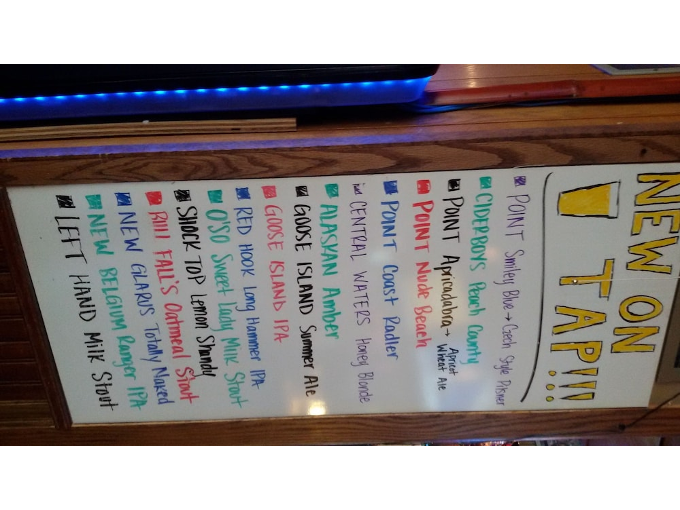 NEW ON
TAP!!!
POINT Smiley Blue → Czech Style Pilsner
CIDERBOYS Peach County
POINT Apricadabra → Apricot
Wheat Ale
POINT Nude Beach
POINT Coast Radler
CENTRAL WATERS Honey Blonde
ALASKAN Amber
GOOSE ISLAND Summer Ale
GOOSE ISLAND IPA
RED HOOK Long Hammer IPA
O'SO Sweet Lady Milk Stout
SHOCK TOP Lemon Shandy
FALL'S Oatmeal Stout
NEW GLARUS Totally Naked
NEW BELGIUM Ranger IPA
LEFT HAND Milk Stout